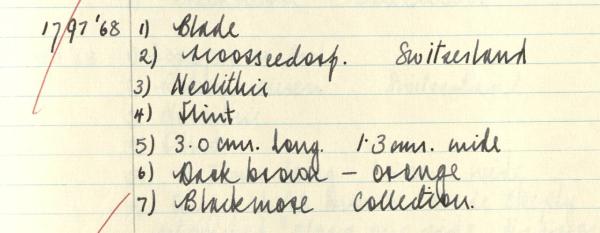 1797'68 1) Blade
2) Moosseedorf. Switzerland
3) Neolithic
4) Flint
5) 3.0 cms. long. 1.3 cms. wide
6) Dark brown – orange
7) Blackmore Collection.